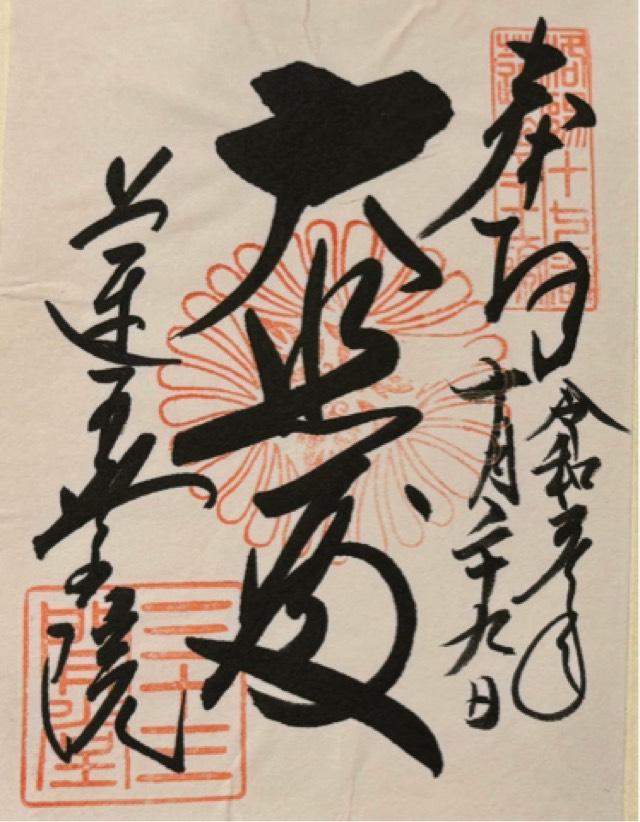 洛陽十七番
奉拝
令和元年
十月二十九日
大悲殿
蓮華王院
三十三
間堂